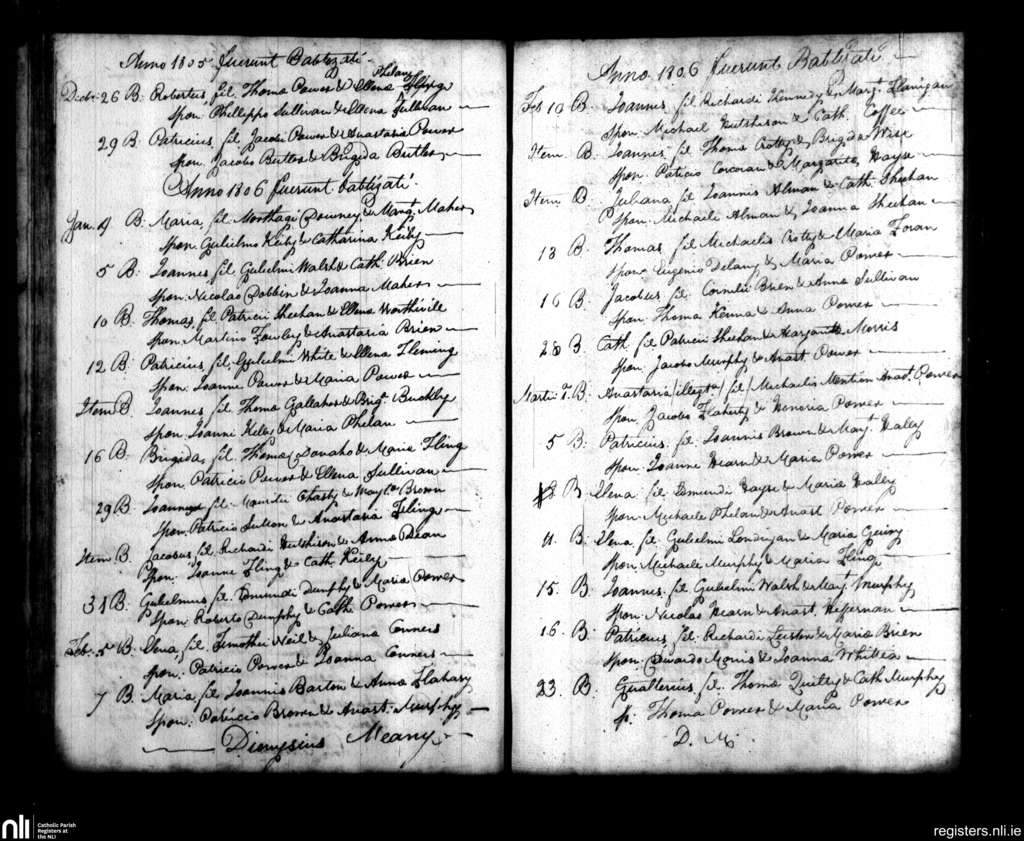 Anno 1805 fuerunt Babtizati.
Decbr 26 B. Robertus, fil. Thoma Power & Ellena Phelan
Spon. Philippo Sullivan & Ellena Sullivan
29 B Patricius, fil. Jacobi Power & Anastaria Power
Spon. Jacobo Butler & Brigida Butler
Anno 1806 fuerunt babtizati.
Jan. B: Maria, fil. Morthagi Downey & Margt. Maher
Spon. Gulielmo Keily & Catharina Keily
5 B: Joannes, fil. Gulielmi Walsh & Cath. Brien
Spon. Nicolao Dobbin & Joanna Maher
10 B. Thomas, fil. Patricii Sheehan & Ellena
Spon. Martino Fowley & Anastaria Brien
12 B Patricius, fil. Gulielmi White & Ellena Fleming
Spon. Joanne Power & Maria Power
Item B Joannes, fil. Thoma Gallahor & Brigt. Buckly
Spon. Joanni Kelly & Maria Phelan
16 B. Brigida, fil. Thoma Donaho & Maria Fling
Spon. Patricio Power & Ellena Sullivan
29 B Joannes fil. Mauritii & Brown
Spon. Patricio Sutton & Anastaria Fling
Item B. Jacobus, fil. Richardi Hutchison & Anna Dean
Spon. Joanne Fling & Cath. Keily
31 B. Gulielmus fil. Edmundi Dunphy & Maria Power
Spon. Roberto Dunphy & Cath. Power
Feb. 5 B. Elena, fil. Timothei Neil & Juliana Conners
Spon. Patricio Power & Joanna Conners
7 B. Maria, fil. Joannis Barton & Anna Flahavy
Spon. Patricio Brown & Anast. Murphy
Dionysius Meany
Anno 1806 fuerunt Babtizati
Feb. 10 B. Joannes fil. Richardi Kennedy & Margt. Flanigan
Spon. Michael Hutchison & Cath. Coffee
Item B. Joannes fil. Thoma Crotty & Brigida Wise
Spon. Patricio Corcoran & Margarita Hayse
Item B Juliana fil. Joannis Alman & Cath. Sheehan
Spon. Michaele Alman & Joanna Sheehan
13 B. Thomas fil. Michaelis Crotty & Maria Foran
Spon. Eugenio Delany & Maria Power
16 B. Jacobus fil. Cornelii Brien & Anna Sullivan
Spon. Thoma Kenna & Anna Power
28 B. Cath. fil. Patricii Sheehan & Margarita Morris
Spon. Jacobo Murphy & Anast. Power
Martii B. Anastaria fil. Michaelis Anast. Power
Spon. Jacobo Flaherty & Honoria Power
5 B. Patricius, fil. Joannis Brown & Margt. Hally
Spon. Joanne Hearn & Maria Power
8 B Elena fil. Edmundi Hayse & Maria Haley
Spon. Michaele Phelan & Anast. Power
11. B. Elena, fil. Gulielmi Londrigan & Maria
Spon. Michaele Murphy & Maria Fling
15. B. Joannes, fil. Gulielmi Walsh & Margt. Murphy
Spon. Nicolao Hearn & Anast. Hefernan
16. B. Patricius, fil. Richardi & Maria Brien
Spon. Edwardo Morris & Joanna Whittea
23. B. Gualterius, fil. Thoma Quilty & Cath. Murphy
Sp. Thoma Power & Maria Power
D. M.
nli
Catholic Parish
Registers at
the NLI
registers.nli.ie